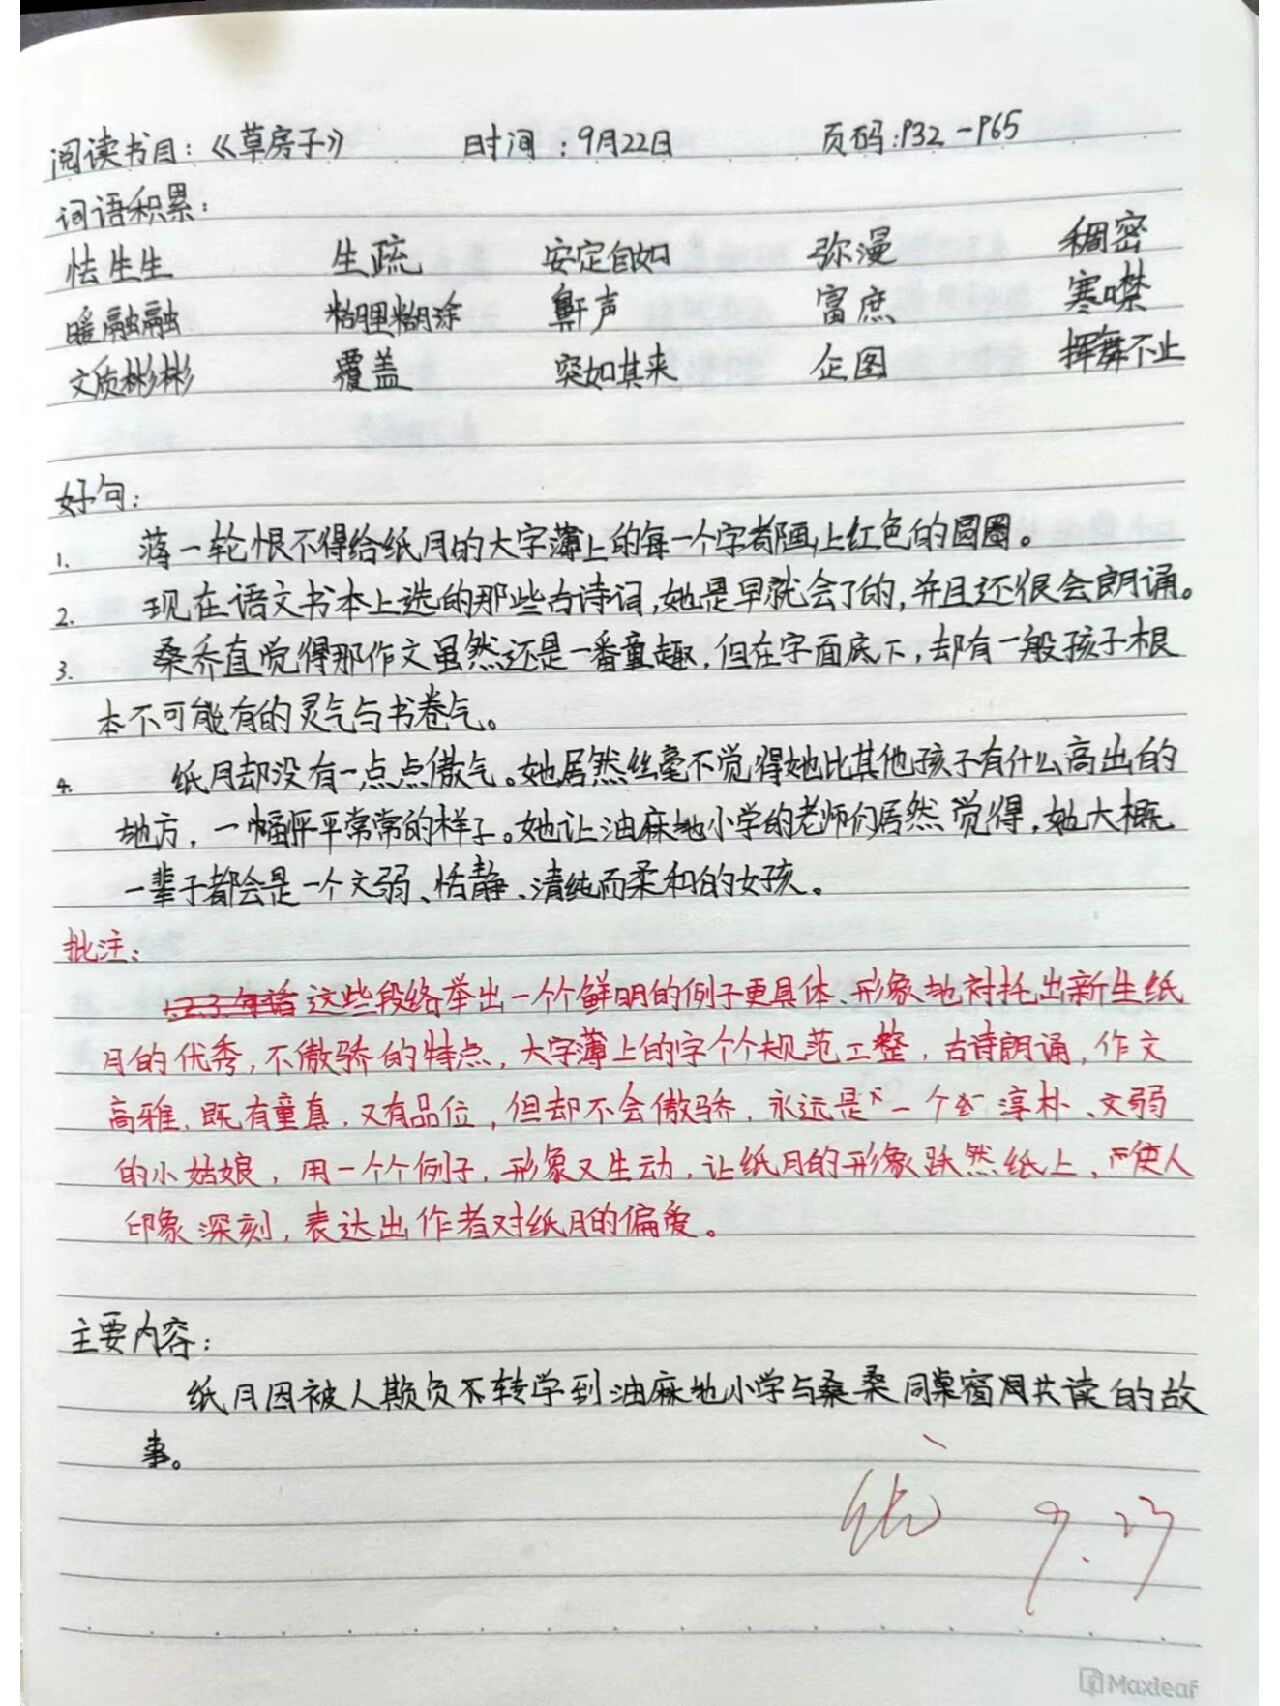 阅读书目：《草房子》 时间：9月22日 页码：P32-P65
词语积累：
怯生生 生疏 安定自如 弥漫 稠密
暖融融 糊里糊涂 鼾声 富庶 寒噤
文质彬彬 覆盖 突如其来 企图 挥舞不止
好句：
1. 蒋一轮恨不得给纸月的大字薄上的每一个字都画上红色的圆圈。
2. 现在语文书本上选的那些古诗词，她是早就会了的，并且还很会朗诵。
3. 桑乔直觉得那作文虽然还是一番童趣，但在字面底下，却有一般孩子根
本不可能有的灵气与书卷气。
4. 纸月却没有一点点傲气。她居然丝毫不觉得她比其他孩子有什么高出的
地方，一幅平平常常的样子。她让油麻地小学的老师们居然觉得，她大概
一辈子都会是一个文弱、恬静、清纯而柔和的女孩。
批注：
这些段络举出一个个鲜明的例子更具体、形象地衬托出新生纸
月的优秀，不傲骄的特点，大字薄上的字个个规范工整，古诗朗诵，作文
高雅，既有童真，又有品位，但却不会傲骄，永远是一个淳朴、文弱
的小姑娘，用一个个例子，形象又生动，让纸月的形象跃然纸上，使人
印象深刻，表达出作者对纸月的偏爱。
主要内容：
纸月因被人欺负不转学到油麻地小学与桑桑同窗共读的故
事。
优 9.23
Maxleaf